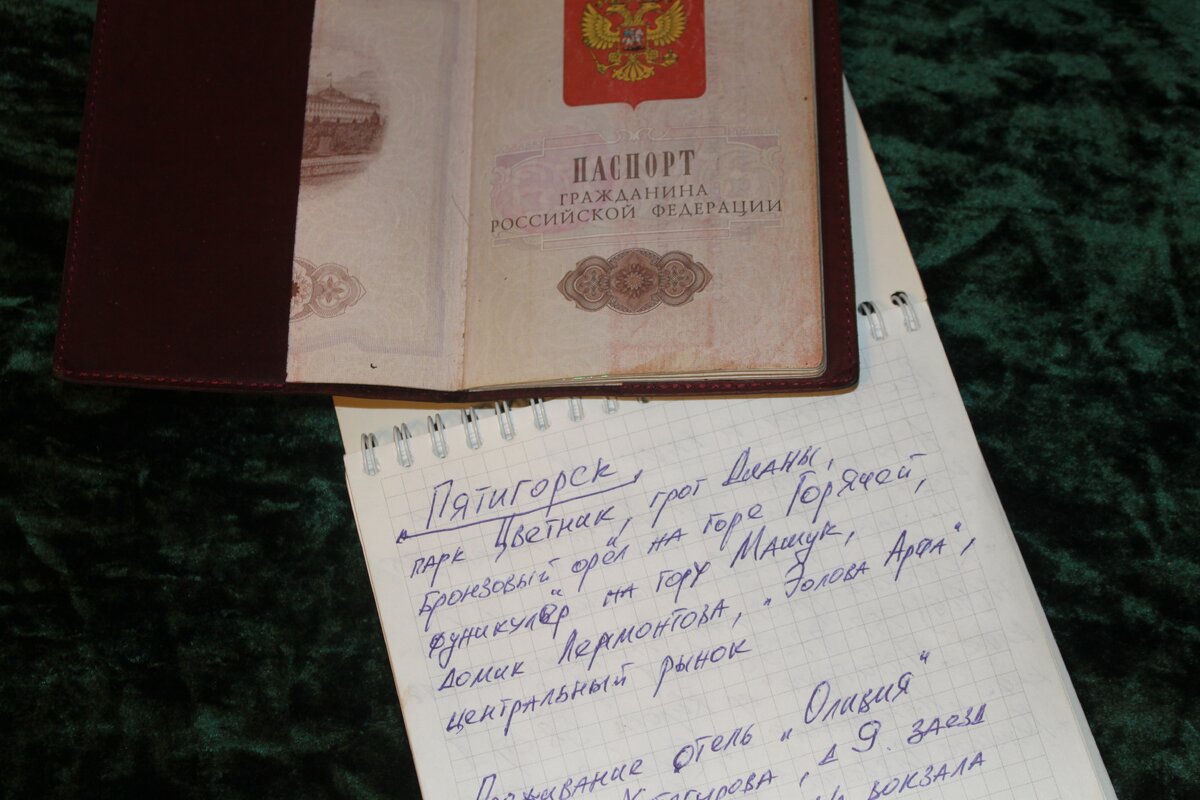 ПАСПОРТ
ГРАЖДАНИНА
РОССИЙСКОЙ ФЕДЕРАЦИИ
„Пятигорск,
парк Цветник, грот Дианы,
Бронзовый "орёл" на горе Горячей,
фуникулёр на гору Машук,
домик Лермонтова, „Эолова Арфа",
центральный рынок
Проживание отель „Олиция"
д 9. заезд
вокзала